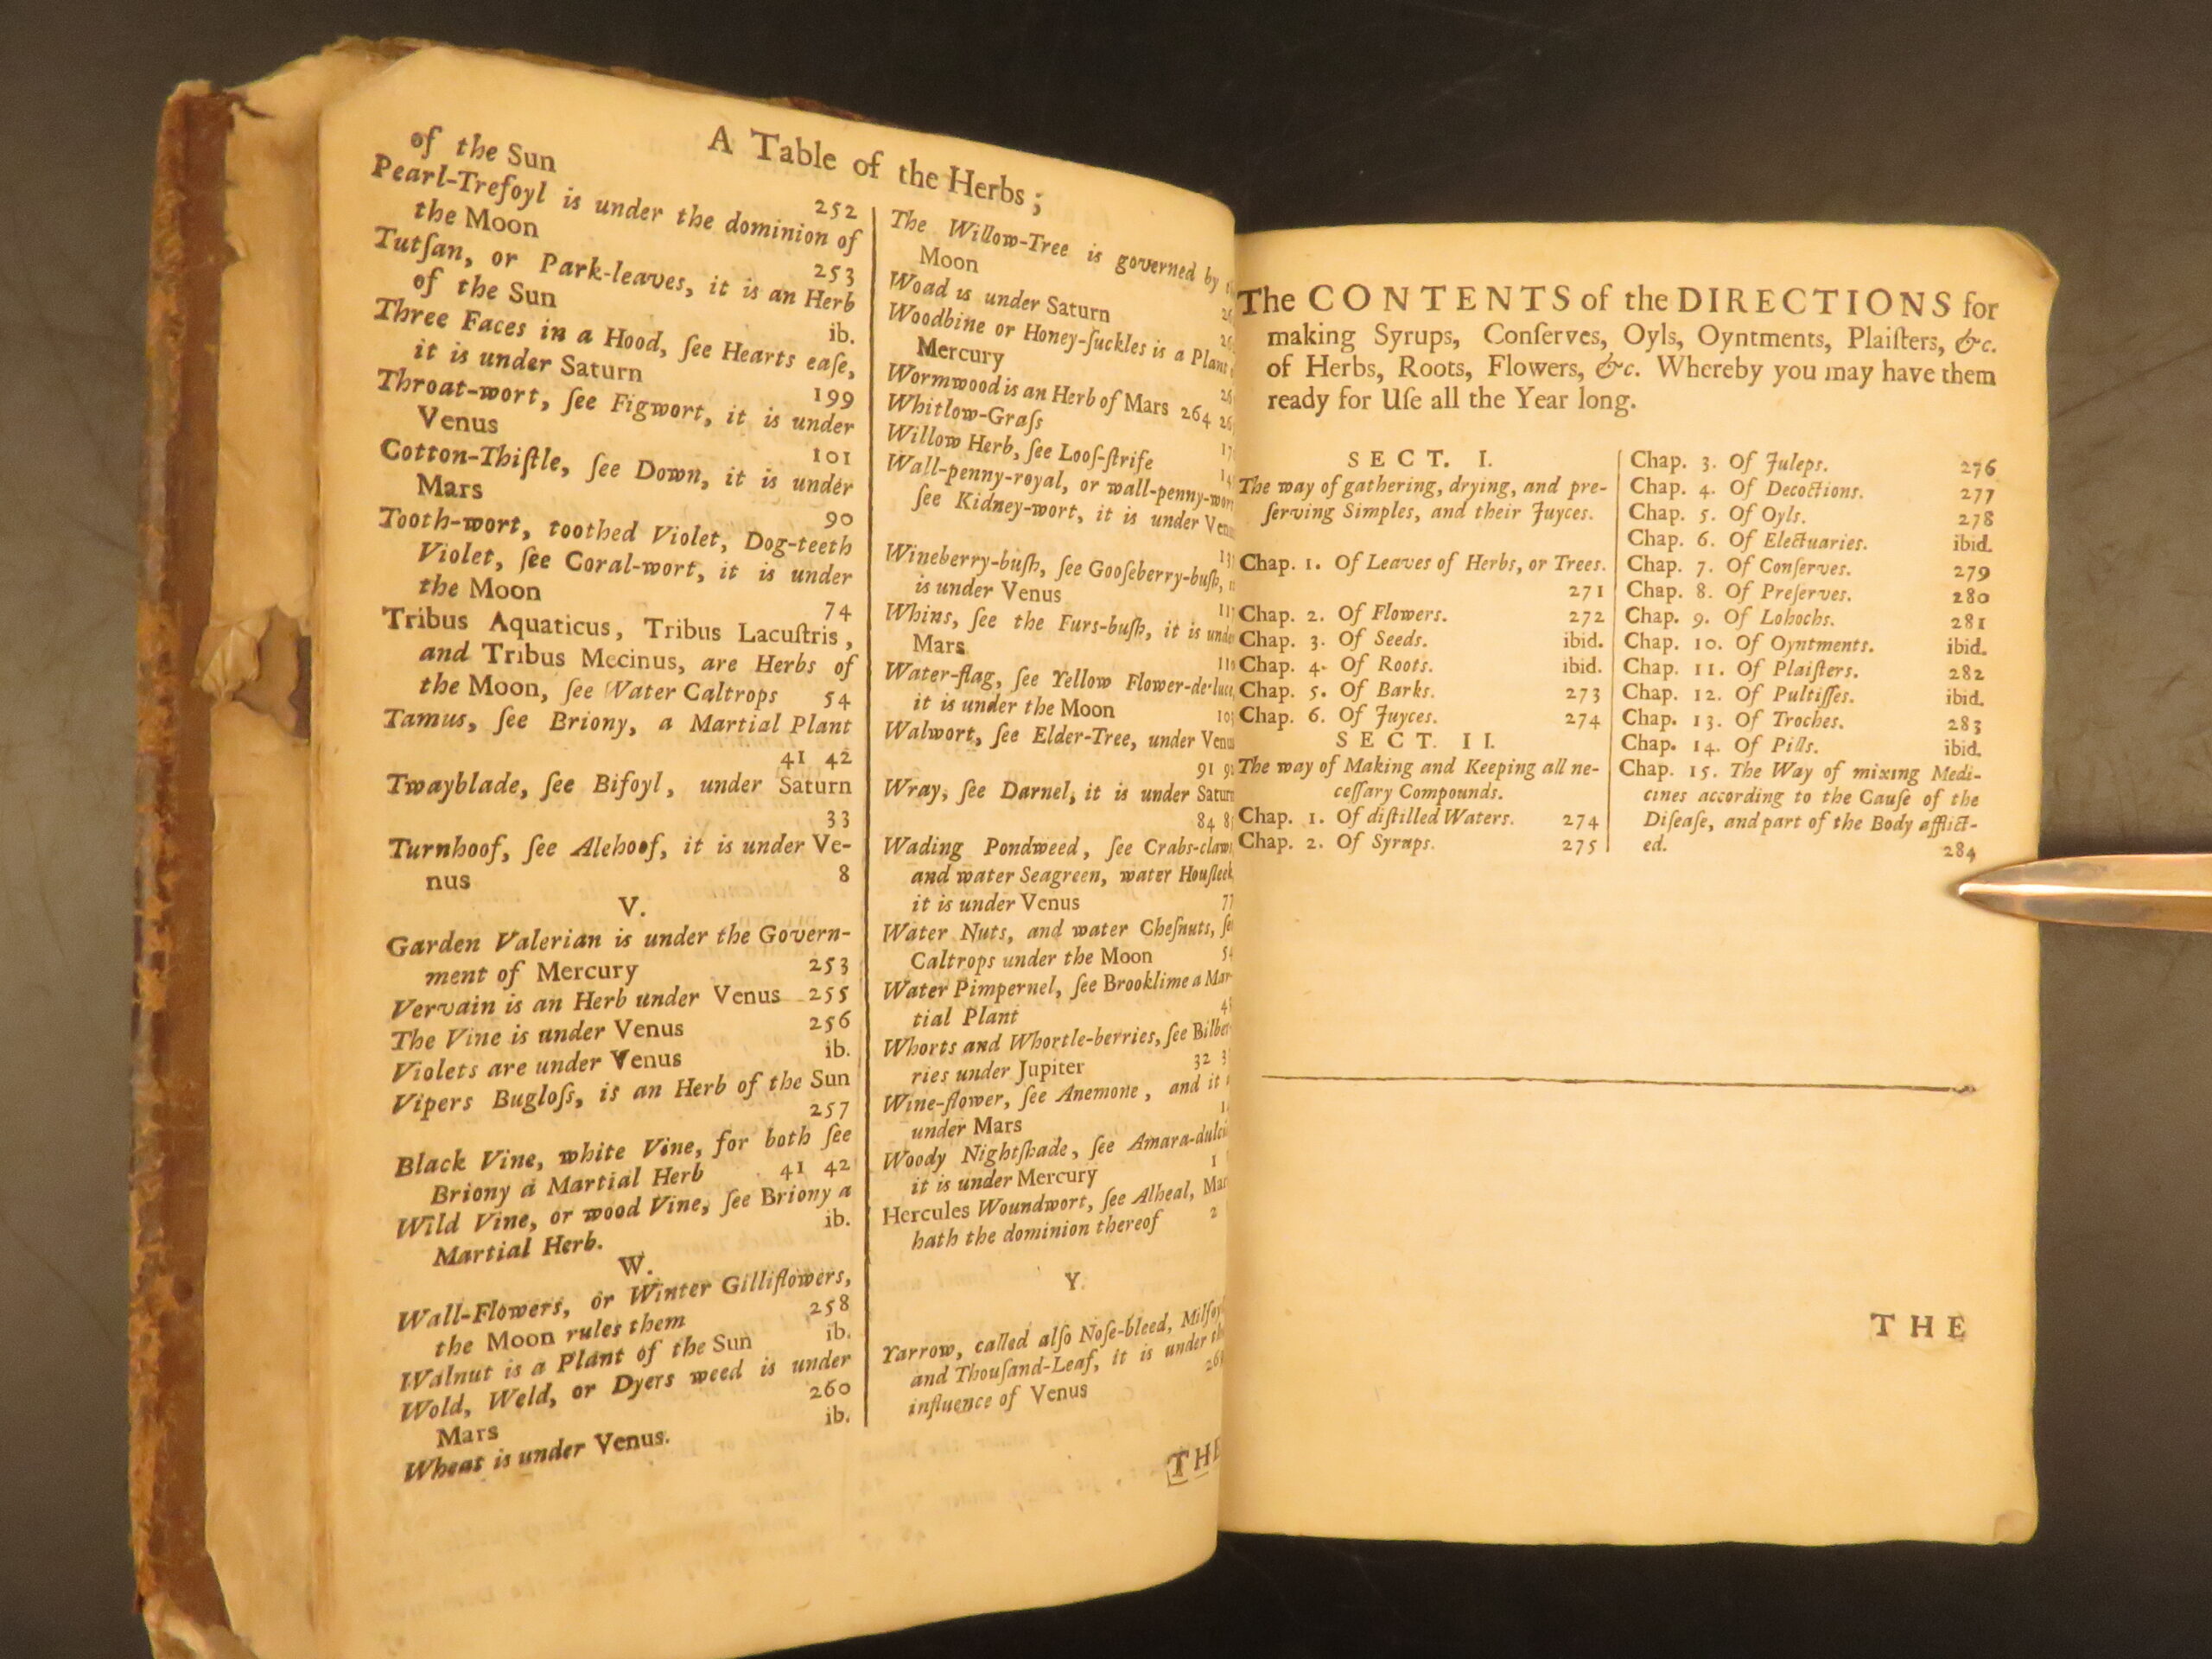 A Table of the Herbs;
of the Sun
252
Pearl-Trefoyl is under the dominion of
the Moon
253
Tutſan, or Park-leaves, it is an Herb
of the Sun
ib.
Three Faces in a Hood, ſee Hearts eaſe,
it is under Saturn
199
Throat-wort, ſee Figwort, it is under
Venus
101
Cotton-Thiſtle, ſee Down, it is under
Mars
90
Tooth-wort, toothed Violet, Dog-teeth
Violet, ſee Coral-wort, it is under
the Moon
74
Tribus Aquaticus, Tribus Lacuſtris,
and Tribus Mecinus, are Herbs of
the Moon, ſee Water Caltrops 54
Tamus, ſee Briony, a Martial Plant
41 42
Twayblade, ſee Bifoyl, under Saturn
33
Turnhoof, ſee Alehoof, it is under Ve-
nus 8
V.
Garden Valerian is under the Govern-
ment of Mercury 253
Vervain is an Herb under Venus 255
The Vine is under Venus 256
Violets are under Venus ib.
Vipers Bugloſs, is an Herb of the Sun
257
Black Vine, white Vine, for both ſee
Briony a Martial Herb 41 42
Wild Vine, or wood Vine, ſee Briony a
Martial Herb. ib.
W.
Wall-Flowers, or Winter Gilliflowers,
the Moon rules them 258
Walnut is a Plant of the Sun ib.
Wold, Weld, or Dyers weed is under
Mars 260
Wheat is under Venus. ib.
The Willow-Tree is governed by
Moon
Woad is under Saturn
Woodbine or Honey-ſuckles is a Plant
Mercury
Wormwood is an Herb of Mars 264
Whitlow-Graſs
Willow Herb, ſee Looſ-ſtrife
Wall-penny-royal, or wall-penny-wort
ſee Kidney-wort, it is under Venus
Wineberry-buſh, ſee Gooſeberry-buſh,
is under Venus
Whins, ſee the Furs-buſh, it is under
Mars
Water-flag, ſee Yellow Flower-de-luce,
it is under the Moon
Walwort, ſee Elder-Tree, under Venus
91
Wray, ſee Darnel, it is under Saturn
84
Wading Pondweed, ſee Crabs-claw,
and water Seagreen, water Houſleek,
it is under Venus 77
Water Nuts, and water Cheſnuts, ſee
Caltrops under the Moon 54
Water Pimpernel, ſee Brooklime a Mar-
tial Plant
Whorts and Whortle-berries, ſee Bilber-
ries under Jupiter 32
Wine-flower, ſee Anemone, and it
under Mars
Woody Nightſhade, ſee Amara-dulcis
it is under Mercury
Hercules Woundwort, ſee Alheal, Mars
hath the dominion thereof 2
Y.
Yarrow, called alſo Noſe-bleed, Milfoyl
and Thouſand-Leaf, it is under the
influence of Venus
THE
The CONTENTS of the DIRECTIONS for
making Syrups, Conſerves, Oyls, Oyntments, Plaiſters, &c.
of Herbs, Roots, Flowers, &c. Whereby you may have them
ready for Uſe all the Year long.
SECT. I.
The way of gathering, drying, and pre-
ſerving Simples, and their Juyces.
Chap. 1. Of Leaves of Herbs, or Trees.
271
Chap. 2. Of Flowers. 272
Chap. 3. Of Seeds. ibid.
Chap. 4. Of Roots. ibid.
Chap. 5. Of Barks. 273
Chap. 6. Of Juyces. 274
SECT. II.
The way of Making and Keeping all ne-
ceſſary Compounds.
Chap. 1. Of diſtilled Waters. 274
Chap. 2. Of Syrups. 275
Chap. 3. Of Juleps. 276
Chap. 4. Of Decoctions. 277
Chap. 5. Of Oyls. 278
Chap. 6. Of Electuaries. ibid.
Chap. 7. Of Conſerves. 279
Chap. 8. Of Preſerves. 280
Chap. 9. Of Lohochs. 281
Chap. 10. Of Oyntments. ibid.
Chap. 11. Of Plaiſters. 282
Chap. 12. Of Pultiſſes. ibid.
Chap. 13. Of Troches. 283
Chap. 14. Of Pills. ibid.
Chap. 15. The Way of mixing Medi-
cines according to the Cauſe of the
Diſeaſe, and part of the Body afflict-
ed. 284
THE